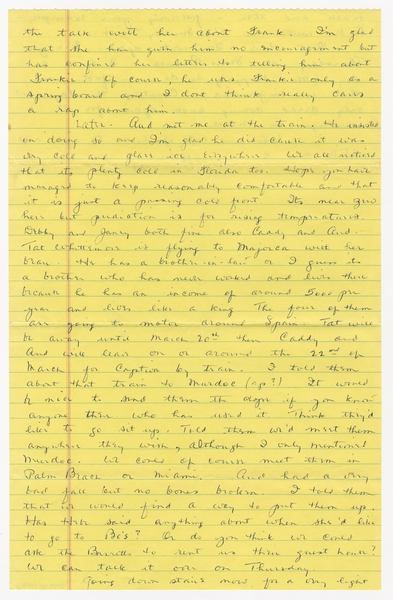 the talk with her about Frank. I'm glad
that she has given him no encouragement but
has confined her letters to telling him about
Frankie. Of course, he uses Frankie only as a
spring board and I dont think really cares
a rap about him.
Later - And met me at the train. He insisted
on doing so and I'm glad he did cause it was
very cold and glare ice everywhere. We all noticed
that its plenty cold in Florida too. Hope you have
managed to keep reasonably comfortable and that
it is just a passing cold front. Its near zero
here but prediction is for rising temperatures.
Debby and Janey both fine also Caddy and And.
Tat Whittemore is flying to Majorca with her
brau. He has a brother-in-law or I guess its
a brother who has never worked and lives there
because he has an income of around 5000 per
year and lives like a King. The four of them
are going to motor around Spain. Tat will
be away until March 20th then Caddy and
And will leave on or around the 22nd of
March for Captiva by train. I told them
about that train to Murdoc (sp?) It would
be nice to send them the dope if you know
anyone there who has used it. Think they'd
like to go sit ups. Told them we'd meet them
anywhere they wish, although I only mentioned
Murdoc. We could of course meet them in
Palm Beach or Miami. And had a very
bad fall but no bones broken. I told them
that we would find a way to put them up.
Has said anything about when she'd like
to go to Bc's? Or do you think we could
ask the Burrotts to rent us their guest house?
We can talk it over on Thursday.
Going down stairs now for a very light